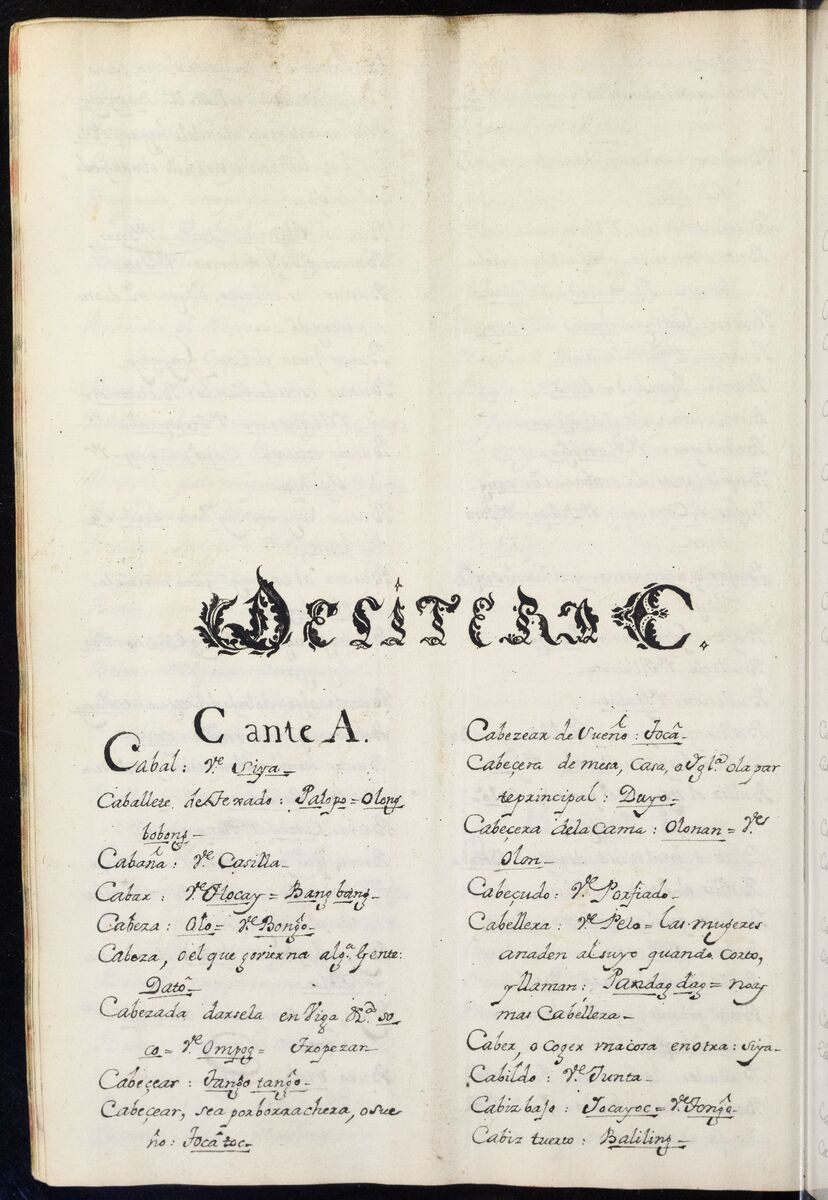 DE LITERA C.
C ante A.
Cabal: Vᵉ Siya-
Caballete deterxado: Palopo= Olong
bobong-
Cabaña: Vᵉ Casilla-
Cabar: Vᵉ Olocay= Bangbang-
Cabeza: Olo= Vᵉ Bongo-
Cabeza, oel que govierna algᵃ. Gente:
Dato-
Cabezada darsela en Viga &ᵃ. so
co= Vᵉ Ompog= Tropezar
Cabeçear: Tango tango-
Cabeçear, sea porborrachera, o sue
ño: Toca toc-
Cabezear de sueño: Toca-
Cabeçera de mesa, Casa, o Iglᵃ. ola par
te principal: Duyo-
Cabeçera dela Cama: Olonan= Vᵉˢ
Olon-
Cabeçudo: Vᵉ Porfiado-
Cabellera: Vᵉ Pelo= las mugeres
anaden al suyo quando corto,
y llaman: Pandag dag= noay
mas Cabellera-
Caber, o coger una cosa en otra: siya-
Cabildo: Vᵉ Junta-
Cabizbajo: Tocayoc= Vᵉ Tongo-
Cabiz tuerto: Baliling-